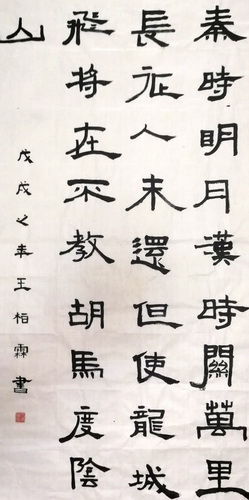 秦時明月漢時關萬里
長征人未還但使龍城
飛將在不教胡馬度陰
山
戊戌之年王柏霖書